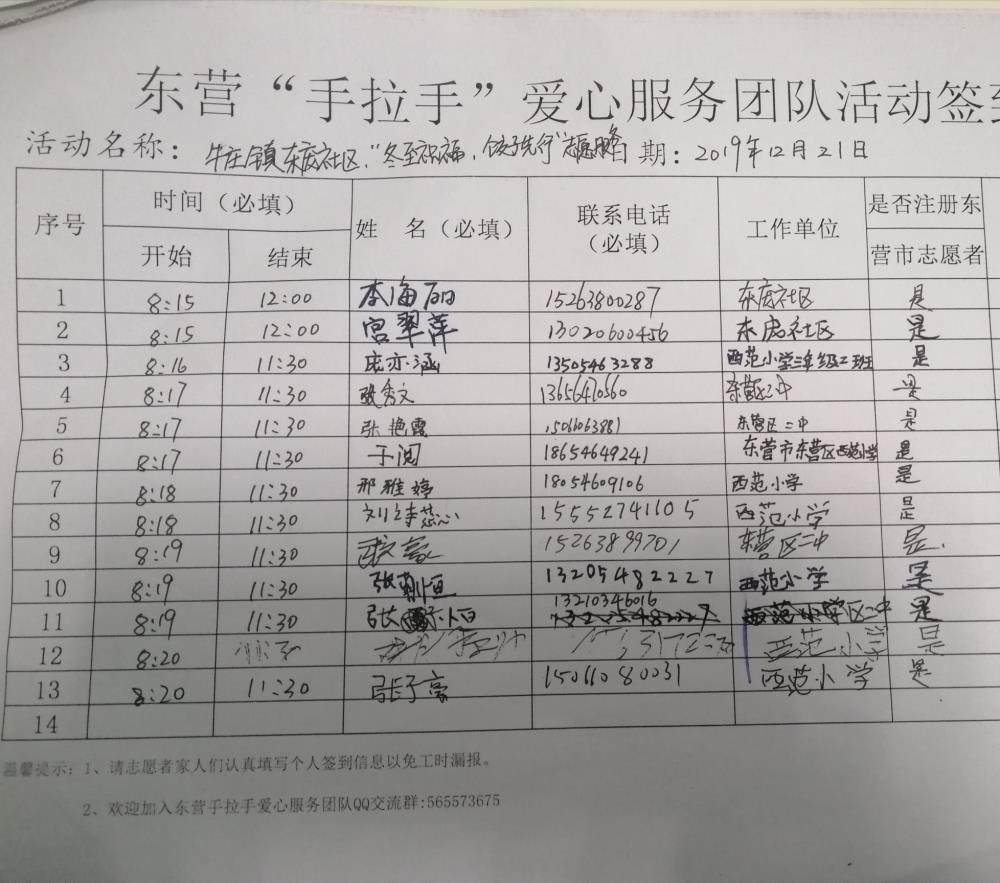 东营“手拉手”爱心服务团队活动签到
活动名称：牛庄镇东庞社区“冬至祝福，饺子先行”志愿服务 日期：2019年12月21日
序号 时间（必填） 姓 名（必填） 联系电话（必填） 工作单位 是否注册东营市志愿者
开始 结束
1 8:15 12:00 李海丽 15263800287 东庞社区 是
2 8:15 12:00 宫翠萍 13020600456 东庞社区 是
3 8:16 11:30 庞亦涵 13505463288 西范小学三年级二班 是
4 8:17 11:30 张秀文 东营区二中 是
5 8:17 11:30 张艳霞 东营区二中 是
6 8:17 11:30 于阅 18654649241 东营市东营区西范小学 是
7 8:18 11:30 邢雅婷 18054609106 西范小学 是
8 8:18 11:30 15552741105 西范小学 是
9 8:19 11:30 15263899701 东营区二中 是
10 8:19 11:30 张 13205482227 西范小学 是
11 8:19 11:30 张 13210346016 区二中 是
12 8:20 西范小学 是
13 8:20 11:30 张子豪 15061080031 西范小学 是
14
温馨提示：1、请志愿者家人们认真填写个人签到信息以免工时漏报。
2、欢迎加入东营手拉手爱心服务团队QQ交流群:565573675